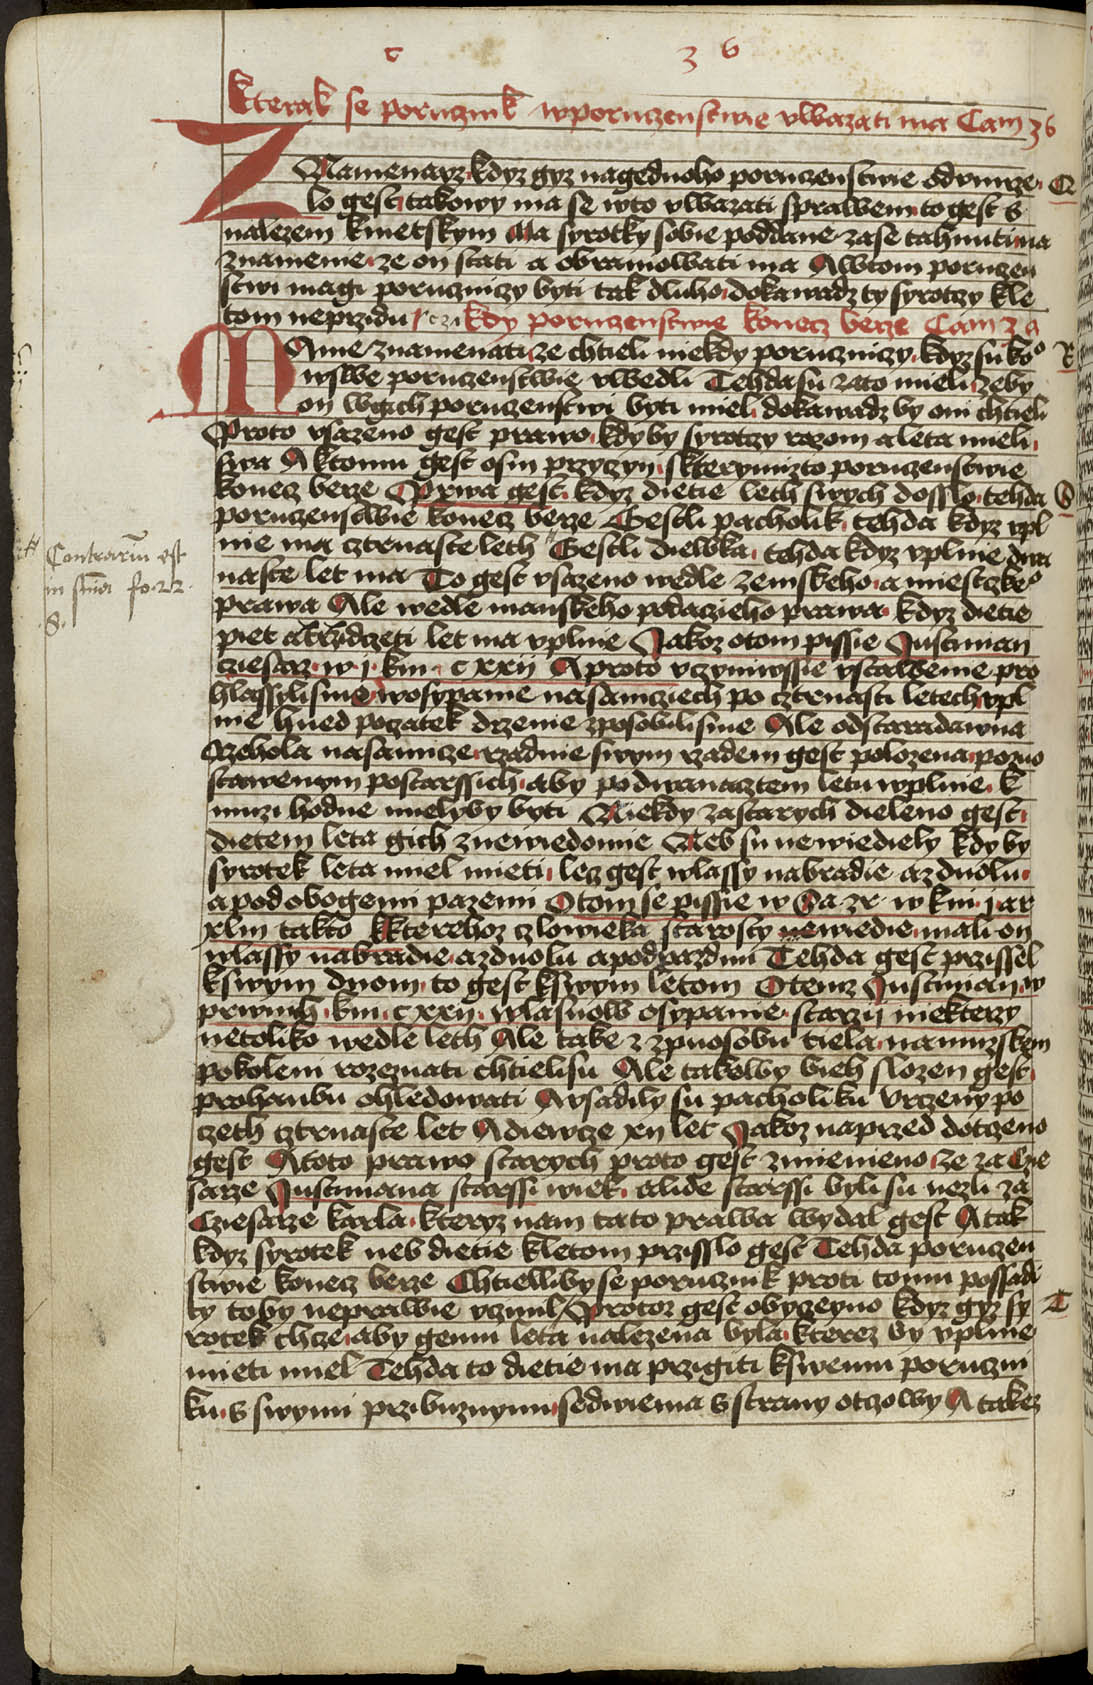 c 36
Kterak se porucznik wporuczenstwie vwazati ma Cam 36
ZNamenayz kdyz gyz nagednoho poruczenstwie odvmrze Q
lo gest takowy ma se wto vwazati sprawem to gest s
nalezem kmetskym Ma syrotky sobie poddane zase tahnuti na
znamenie ze on stati a obranowati ma Awtom poruczen
stwi magi porucznicy byti tak dluho dokawadz ty syrotczy kle
tom neprzidu kdy poruczenstwie konecz berze Cam
MAme znamenati ze chtieli niekdy porucznicy kdyz su ko°
wswe poruczenstwie vwedli Tehda su zato mieli zeby
on wgich poruczenstwi byti miel dokawadz by oni chtieli
Proto vsazeno gest prawo kdyby syrotczy rozom a leta mieli
swa A ktomu gest osm przyczyn skterymizto poruczenstwie
konecz berze Prwa gest kdyz dietie leth swych dosslo tehda S
poruczenstwie konecz berze Gestli pacholik tehda kdyz vpl
nie ma cztrnaste leth Gestli diewka tehda kdyz vplnie dwa
Contrarium est
in fo 22
8.
naste let ma To gest vsazeno wedle zemskeho a miestzke°
prawa Ale wedle manskeho podacieho prawa kdyz dietie
piet a trzidczeti let ma vplnie Jakoz otom pissie Justinian
cziesarz w j kni c xxij A proto vczyniwssie vstawenie pro
hlassilisme wosypanie nasamcziech po cztrnasti letech vpl
nie hned poczatek drzenie zposobilisme Ale odstaradawna
Czehola nasamicze rzadnie swym rzadem gest polozena pozuo
stawenym postarssich aby podwanacztem letu wplnie k
muzi hodne mielyby byti Niekdy zastarych dieleno gest
dietem leta gich znewiedomie Neb su newiediely kdyby
syrotek leta miel mieti lecz gest wlassy nabradie azduolu
a pod obogemi pazemi Otom se pissie w Sa zr w kni j ar
xlij takto Kterehoz czlowieka starosty newiedie mali on
wlassy nabradie azduolu apodpazdmi Tehda gest przissel
kswym dnom to gest kswym letom Otemz Justinian w
prwnich kni c xxij wlasnow osypanie starzij niekterzy
netoliko wedle leth Ale take z zpuosobu tiela namuzskem
pokoleni rozeznati chtielisu Ale takowy bieh slozen gest
prohanbu ohledowati A vsadily su pacholiku Vrczeny po
czeth cztrnaste let A diewcze xij let Jakoz naprzed dotczeno
gest A toto prawo starych proto gest zmienieno ze za Czie
sarze Justiniana starssi wiek alide starssi byli su nezli za
Cziesarze karla kteryz nam tato prawa wydal gest A tak
kdyz syrotek neb dietie kletom przisslo gest Tehda poruczen
stwie konecz berze Chtielliby se porucznik proti tomu possadi
ty toby neprawie vczinil Protoz gest obyczeyno kdyz gyz sy T
rotek chce aby gemu leta nalezena byla kterez by vplnie
mieti miel Tehda to dietie ma przigiti kswemu poruczni
ku s swymi przibuznymi sedwiema sstrany otczowy A takez